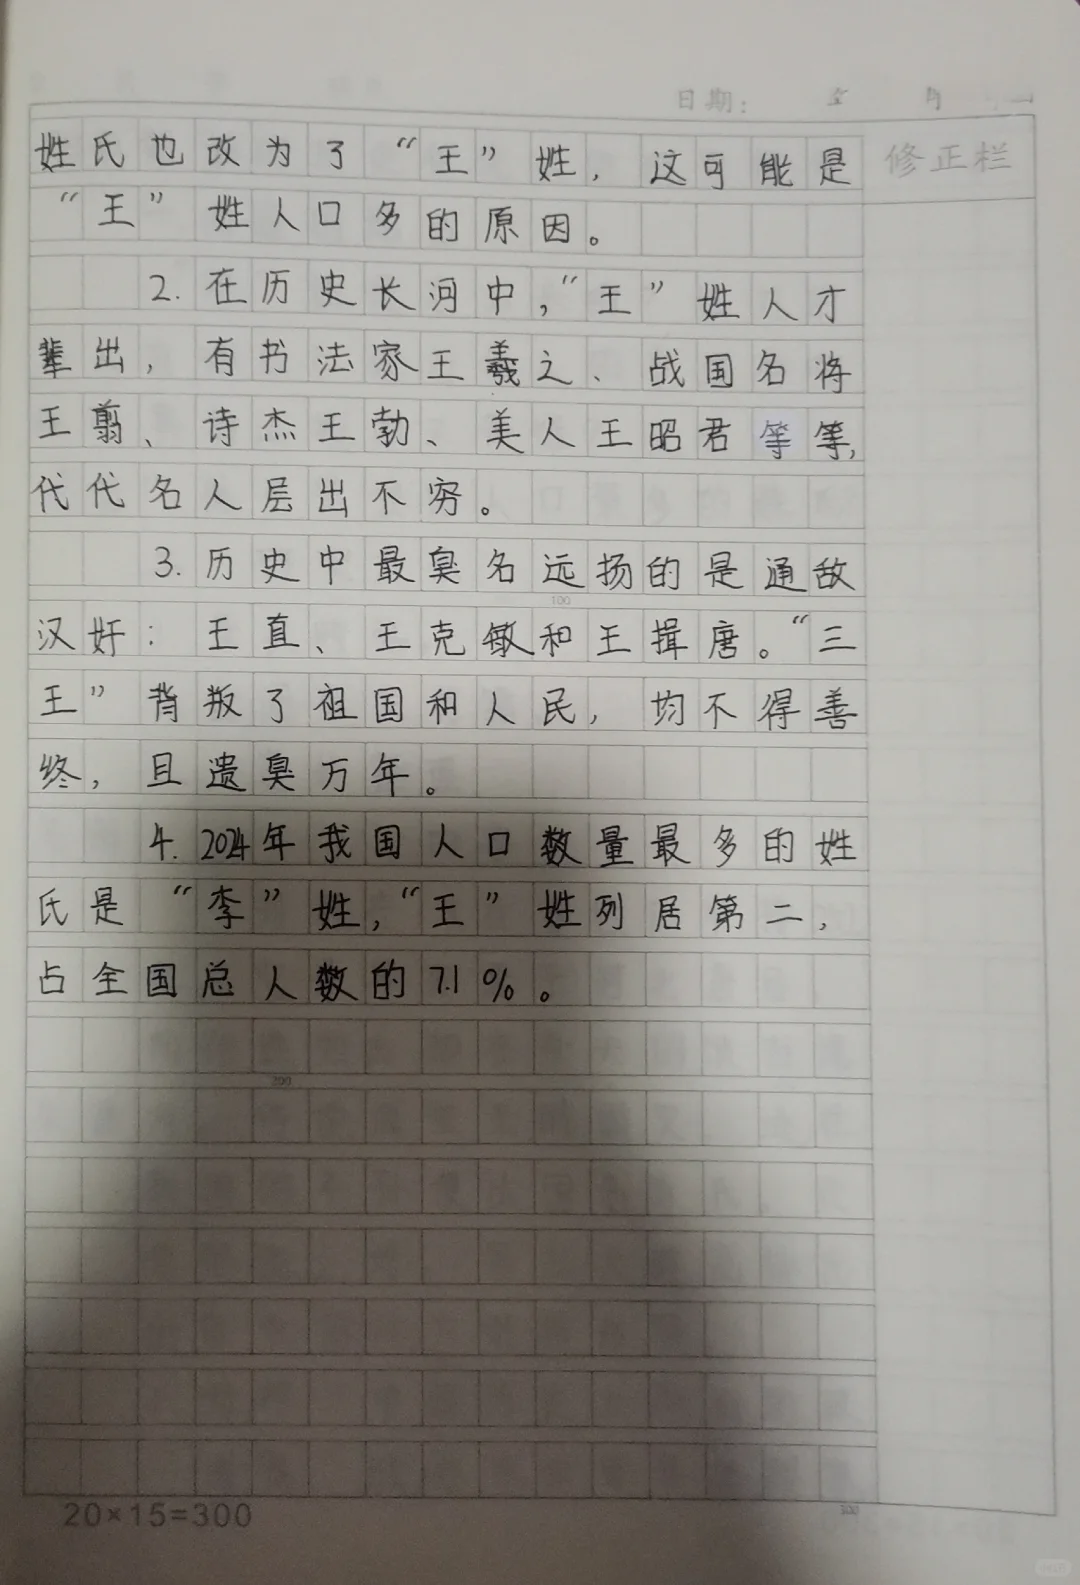 日期：
修正栏
姓氏也改为了“王”姓，这可能是
“王”姓人口多的原因。
2.在历史长河中，“王”姓人才
辈出，有书法家王羲之、战国名将
王翦、诗杰王勃、美人王昭君等等，
代代名人层出不穷。
3.历史中最臭名远扬的是通敌
100
汉奸：王直、王克敏和王揖唐。“三
王”背叛了祖国和人民，均不得善
终，且遗臭万年。
4.2024年我国人口数量最多的姓
氏是“李”姓，“王”姓列居第二，
占全国总人数的7.1%。
200
300
20×15=300